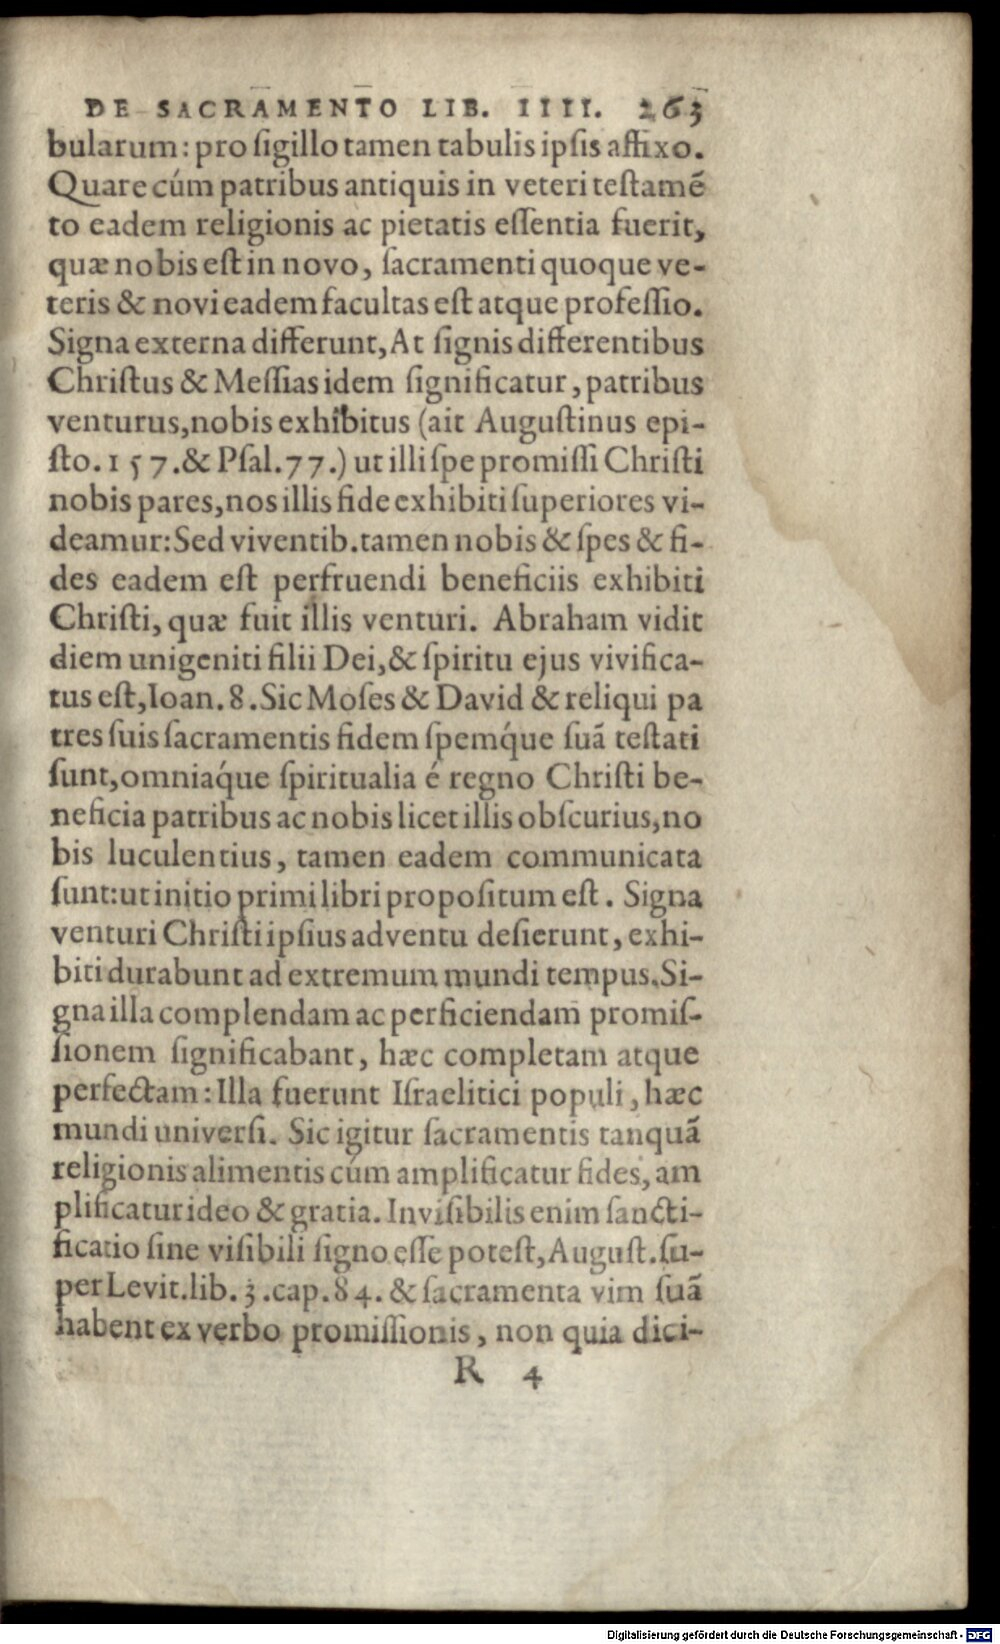 DE SACRAMENTO LIB. IIII. 263
bularum: pro ſigillo tamen tabulis ipſis affixo.
Quare cúm patribus antiquis in veteri teſtamẽ
to eadem religionis ac pietatis eſſentia fuerit,
quæ nobis eſt in novo, ſacramenti quoque ve-
teris & novi eadem facultas eſt atque profeſſio.
Signa externa differunt, At ſignis differentibus
Chriſtus & Meſſias idem ſignificatur, patribus
venturus, nobis exhibitus (ait Auguſtinus epi-
ſto. 157. & Pſal. 77.) ut illi ſpe promiſſi Chriſti
nobis pares, nos illis fide exhibiti ſuperiores vi-
deamur: Sed viventib. tamen nobis & ſpes & fi-
des eadem eſt perfruendi beneficiis exhibiti
Chriſti, quæ fuit illis venturi. Abraham vidit
diem unigeniti filii Dei, & ſpiritu ejus vivifica-
tus eſt, Ioan. 8. Sic Moſes & David & reliqui pa
tres ſuis ſacramentis fidem ſpemq́ue ſuã teſtati
ſunt, omniaq́ue ſpiritualia é regno Chriſti be-
neficia patribus ac nobis licet illis obſcurius, no
bis luculentius, tamen eadem communicata
ſunt: ut initio primi libri propoſitum eſt. Signa
venturi Chriſti ipſius adventu deſierunt, exhi-
biti durabunt ad extremum mundi tempus. Si-
gna illa complendam ac perficiendam promiſ-
ſionem ſignificabant, hæc completam atque
perfectam: Illa fuerunt Iſraelitici populi, hæc
mundi univerſi. Sic igitur ſacramentis tanquã
religionis alimentis cúm amplificatur fides, am
plificatur ideo & gratia. Inviſibilis enim ſancti-
ficatio ſine viſibili ſigno eſſe poteſt, Auguſt. ſu-
per Levit. lib. 3. cap. 84. & ſacramenta vim ſuã
habent ex verbo promiſſionis, non quia dici-
R 4
Digitalisierung gefördert durch die Deutsche Forschungsgemeinschaft - DFG